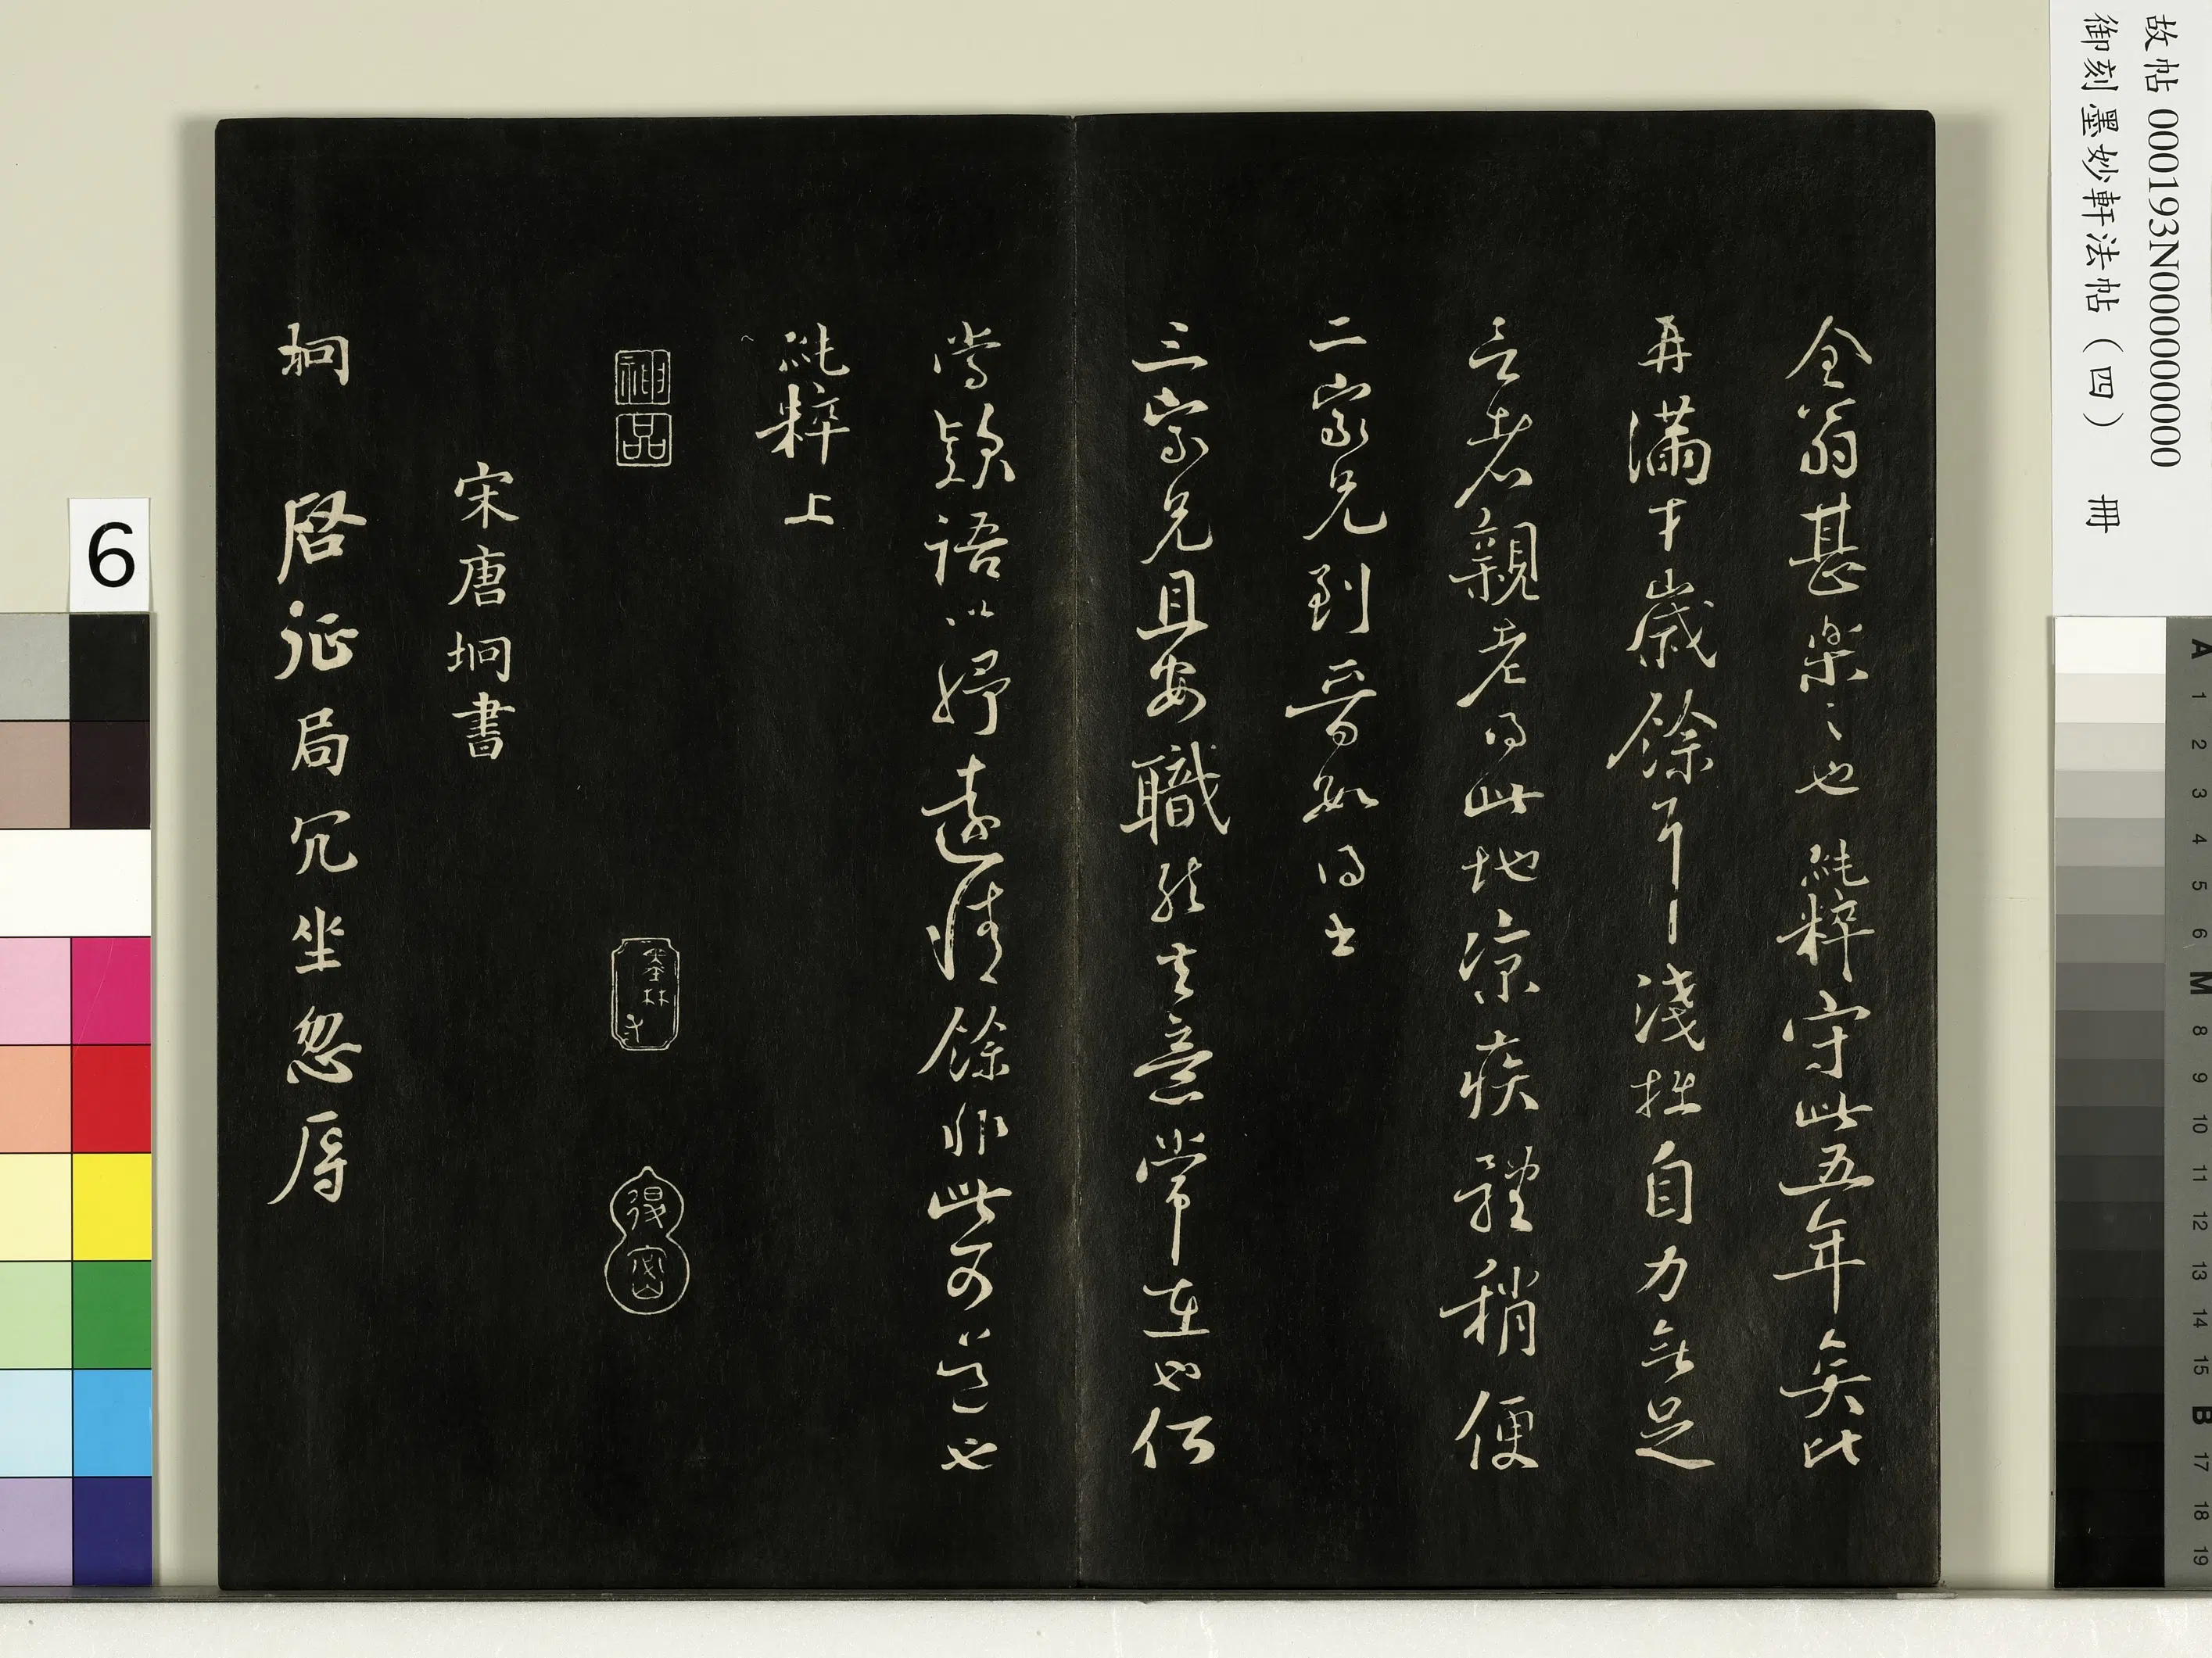 故帖 000193N000000000
御刻墨妙軒法帖（四） 冊
全翁甚樂之也純粹守此五年矣比
再滿十歲餘耳淺拙自力無足
言者親老得此地涼疾體稍便
二家兄到晉如得士
三家兄且安職然其意常在也何
當欵語以紓遠情餘非此可道也
純粹上
神品
宋唐坰書
坰啓征局冗坐忽辱
6
A 1 2 3 4 5 6 M 8 9 10 11 12 13 14 15 B 17 18 19